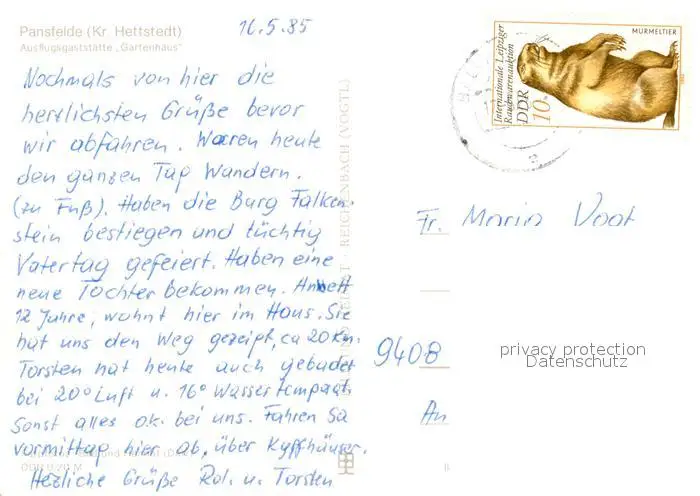 Pansfelde (Kr. Hettstedt)
Ausflugsgaststätte „Gartenhaus"
16.5.85
Nochmals von hier die
herrlichsten Grüße bevor
wir abfahren. Waren heute
den ganzen Tag Wandern.
(zu Fuß). Haben die Burg Falken-
stein bestiegen und tüchtig
Vatertag gefeiert. Haben eine
neue Tochter bekommen. Annett
12 Jahre, wohnt hier im Haus. Sie
hat uns den Weg gezeigt, ca 20 km.
Torsten hat heute auch gebadet
bei 20° Luft u. 16° Wassertemperat.
Sonst alles ok. bei uns. Fahren Sa
vormittag hier ab, über Kyffhäuser.
Herzliche Grüße Rol. u. Torsten
REICHENBACH (VOGTL)
MURMELTIER
Internationale Leipziger
Rauchwarenauktion
DDR
10
Fr. Maria Vogt
9408
An
privacy protection
Datenschutz